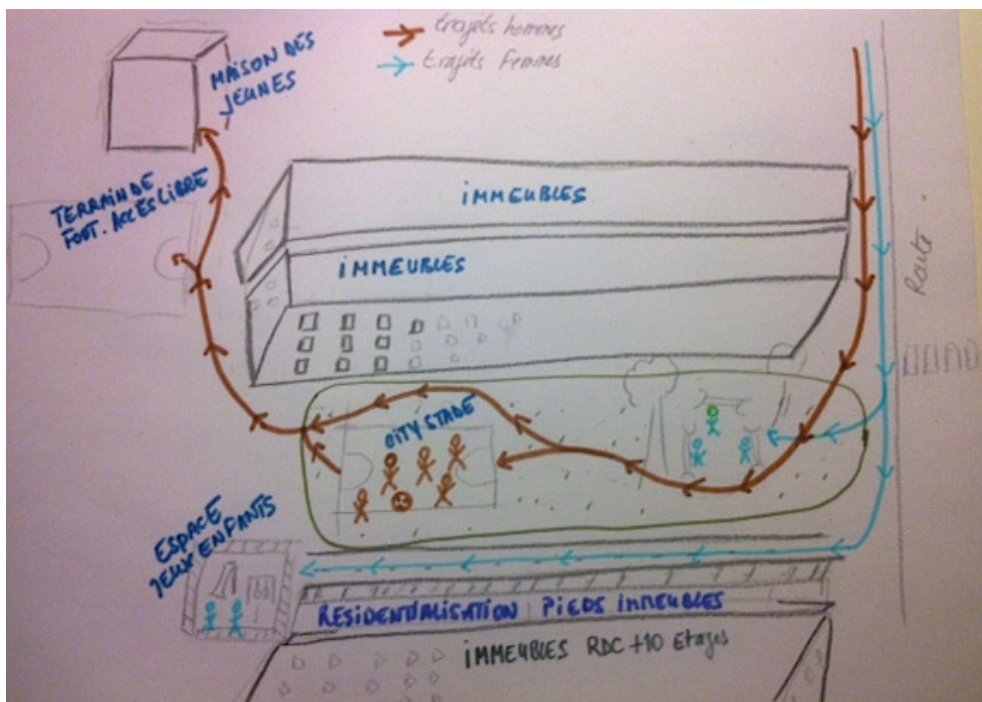 trajets hommes
trajets Femmes
MAISON DES
JEUNES
TERRAIN DE
FOOT. ACCES LIBRE
iMMEUBLES
iMMEUBLES
Route
CITY STADE
ESPACE
JEUX ENFANTS
RESIDENTIALISATION PIEDS IMMEUBLES
iMMEUBLES RDC +10 Etages